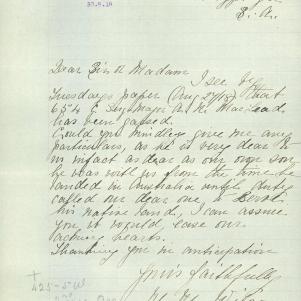 30.9.18
S. A.
Dear Sir or Madam
I see by
Tuesdays paper (Aug 27/18) that
654 C. Sey. Major A. N. MacLeod
has been gassed.
Could you kindly give me any
particulars, as he is very dear to
us infact as dear as our own son
he was with us from the time he
landed in Australia until duty
called our dear one to Serve
his native land, I can assure
you it would ease our
aching hearts.
Thanking you in anticipation
Yours faithfully
425-5W